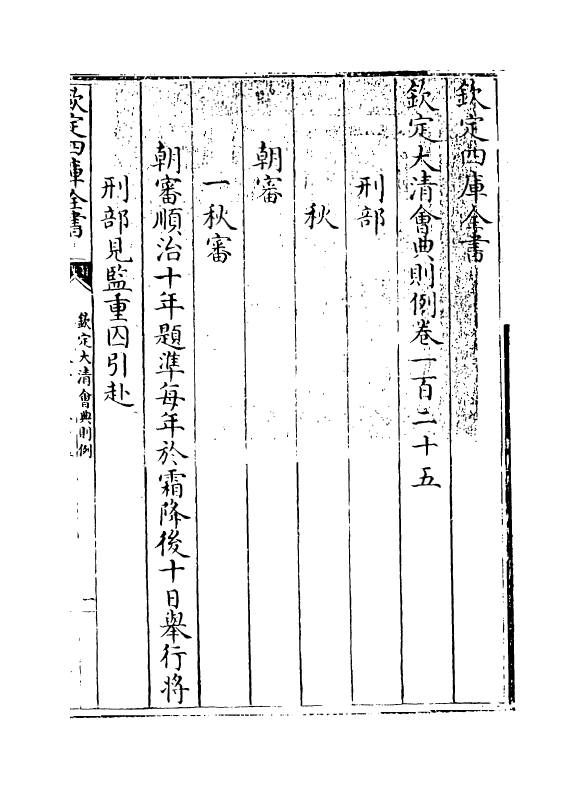 欽定四庫全書
欽定大清會典則例卷一百二十五
刑部
秋
朝審
一秋審
朝審順治十年題準每年於霜降後十日舉行將
刑部見監重囚引赴
欽定四庫全書
欽定大清會典則例
一